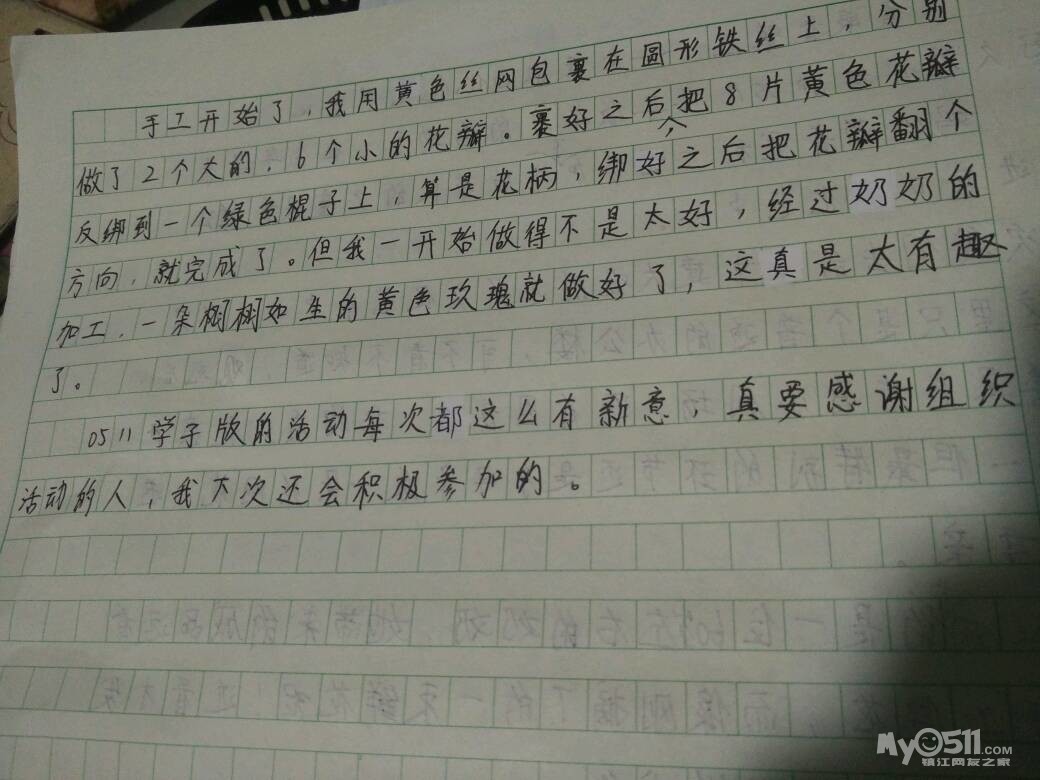 手工开始了,我用黄色丝网包裹在圆形铁丝上,分别
做了2个大的,6个小的花瓣。裹好之后把8片黄色花瓣
反绑到一个绿色棍子上,算是花柄,绑好之后把花瓣翻个
方向,就完成了。但我一开始做得不是太好,经过奶奶的
加工,一朵栩栩如生的黄色玫瑰就做好了,这真是太有趣
了。
0511学子版的活动每次都这么有新意,真要感谢组织
活动的人,我下次还会积极参加的。
My0511.COM
镇江网友之家